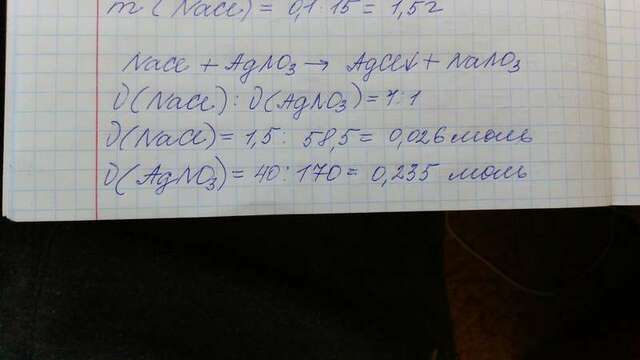 m(NaCl) = 0,1 · 15 = 1,5г
NaCl + AgNO₃ → AgCl↓ + NaNO₃
ν(NaCl) : ν(AgNO₃) = 1 : 1
ν(NaCl) = 1,5 : 58,5 = 0,026 моль
ν(AgNO₃) = 40 : 170 = 0,235 моль